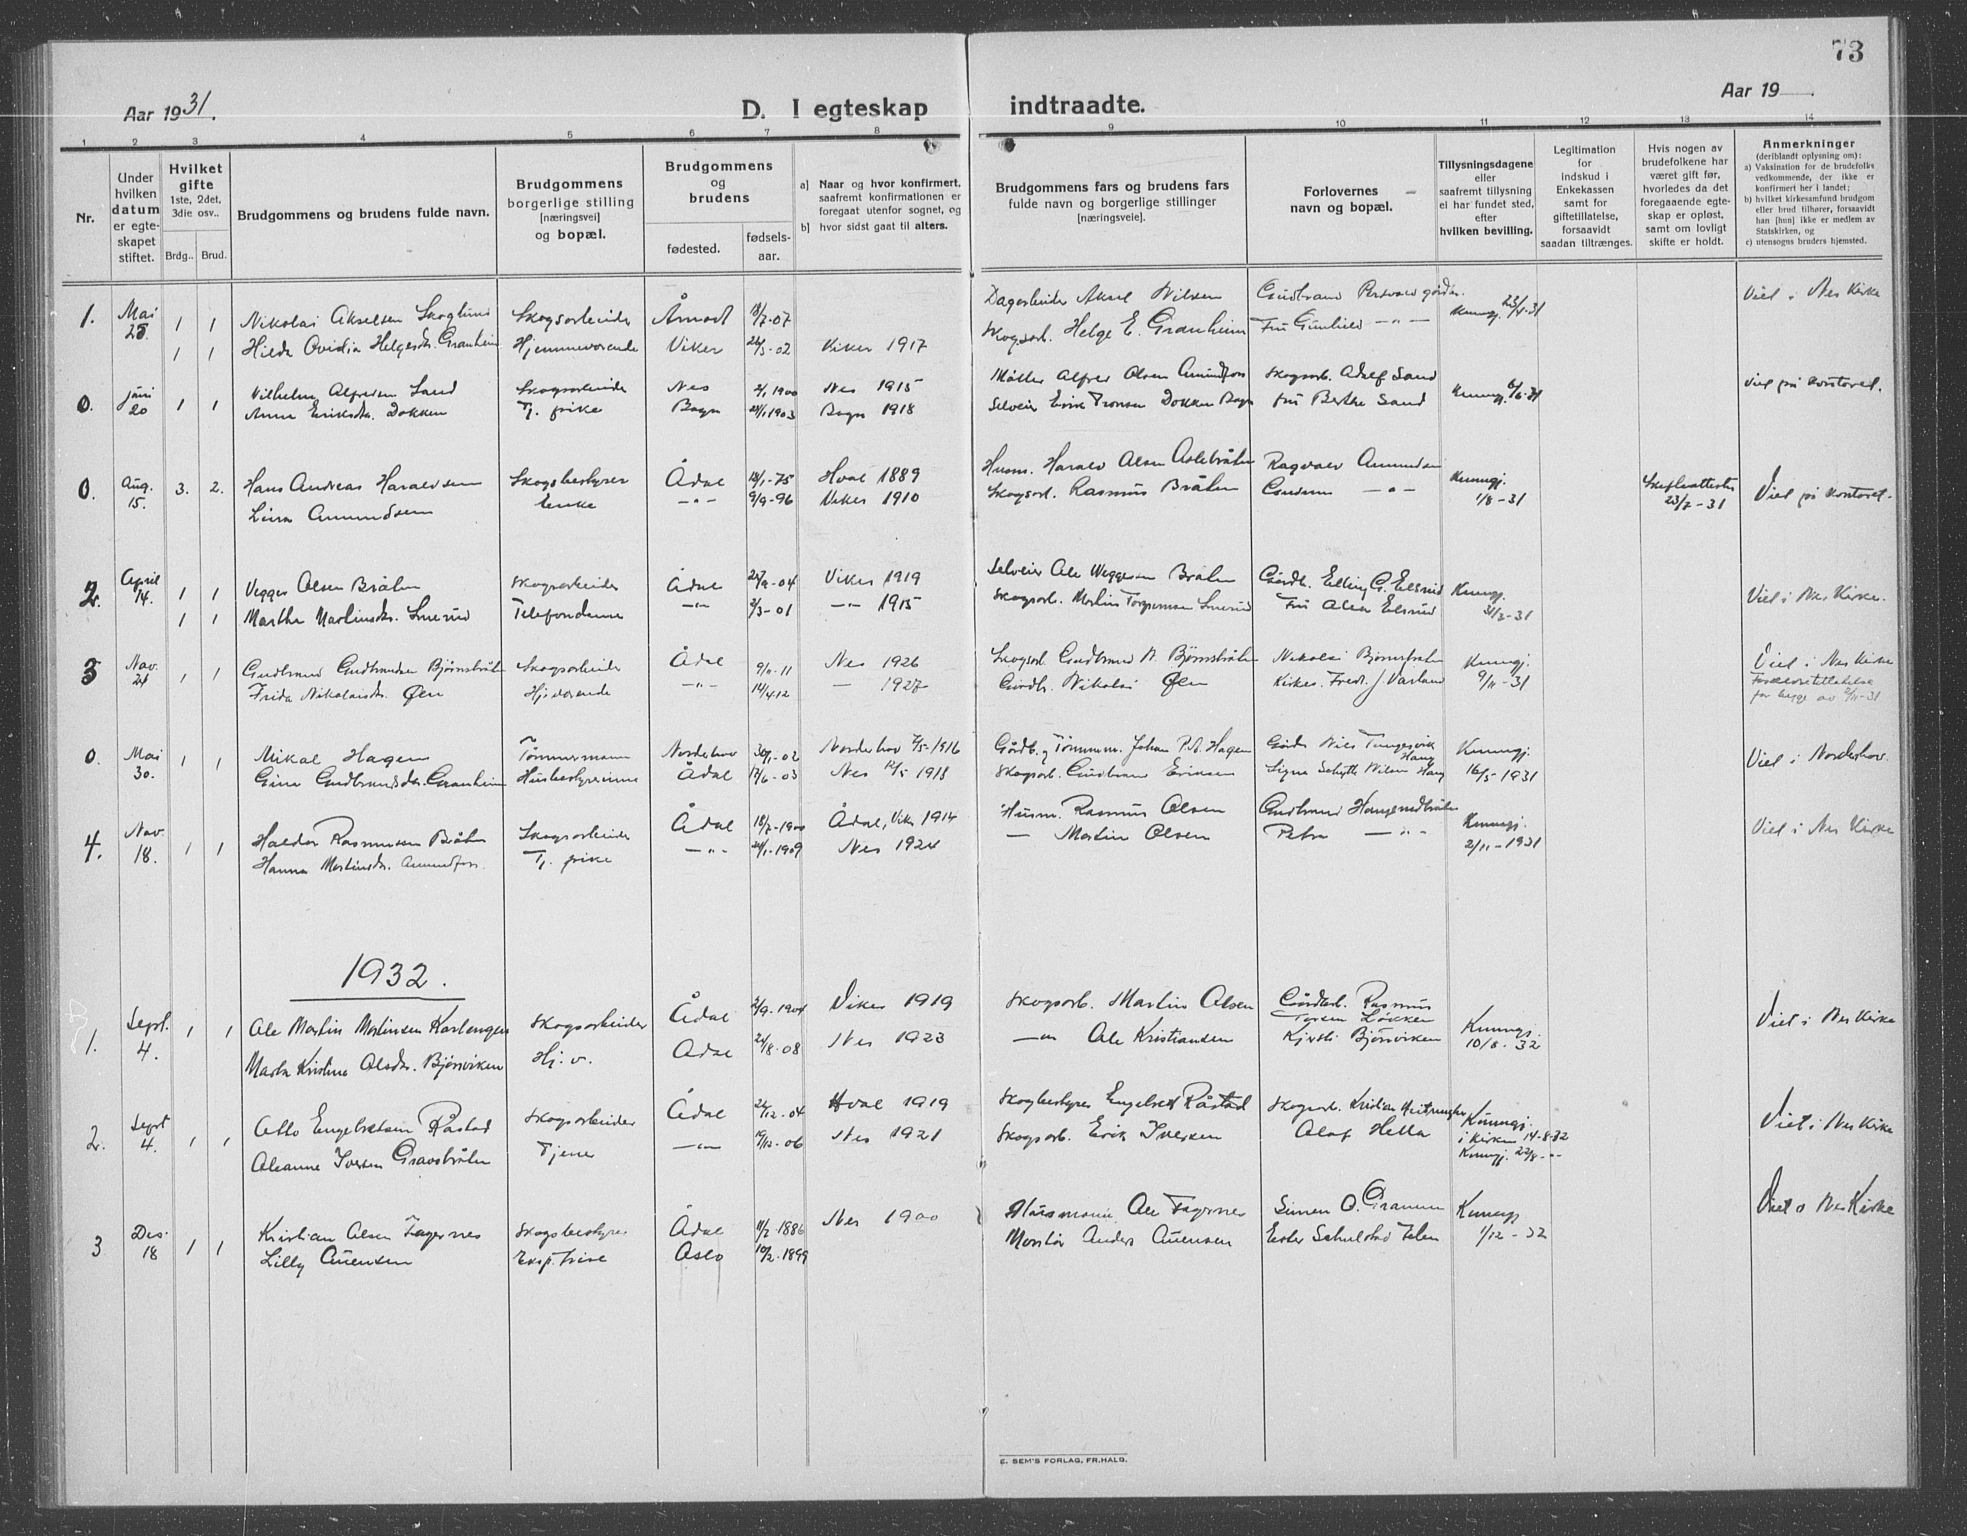 73
Aar 1931.
D. I egteskap indtraadte.
Aar 19
1 2 3 4 5 6 7 8 9 10 11 12 13 14
Nr.
Under hvilken datum er egteskapet stiftet.
Hvilket gifte 1ste, 2det, 3die osv..
Brdg.. Brud.
Brudgommens og brudens fulde navn.
Brudgommens borgerlige stilling [næringsvei] og bopæl.
Brudgommens og brudens
fødested. fødselsaar.
a] Naar og hvor konfirmert, saafremt konfirmationen er foregaat utenfor sognet, og
b] hvor sidst gaat til alters.
Brudgommens fars og brudens fars fulde navn og borgerlige stillinger [næringsveie].
Forlovernes navn og bopæl.
Tillysningsdagene eller saafremt tillysning ei har fundet sted, efter hvilken bevilling.
Legitimation for indskud i Enkekassen samt for giftetillatelse, forsaavidt saadan tiltrænges.
Hvis nogen av brudefolkene har været gift før, hvorledes da det foregaaende egteskap er opløst, samt om lovligt skifte er holdt.
Anmerkninger (deriblandt oplysning om): a) Vaksination for de brudefolks vedkommende, der ikke er konfirmert her i landet; b) hvilket kirkesamfund brudgom eller brud tilhører, forsaavidt han [hun] ikke er medlem av Statskirken, og c) utensogns bruders hjemsted.
1. Mai 25. 1 1 Nikolai Akselsen Skoglund Skogsarbeider Åmot 18/7-07 Aksel Nilsen Gudbrand Kunngj. 23/4-31 Viel i Nes Kirke
1 1 Hilda Ovidia Helgesdr. Granheim Hjemmeværende Viker 24/3-02 Viker 1917 Skogsarb. Helge E. Granheim Fru Gunhild -"-
0. Juni 20 1 1 Vilhelm Alfredsen Sand Skogsarbeider Nes 2/1 1900 Nes 1915 Møller Alfred Olsen Amundfors Skogsarb. Adolf Sand Kunngj. 6/6-31 Viel på kontoret.
Anna Eriksdr. Dokken Tj. pike Bagn 1903 Bagn 1918 Selveier Erik Tronsen Dokken Bagn Fru Berthe Sand
0. Aug. 15. 3. 2. Hans Andreas Haraldsen Skogbestyrer Ådal 18/1-75 Hval 1889 Husm. Harald Olsen Ragvald Amundsen Kunngj. 1/8-31 Skifteattester 23/7-31 Viel på kontoret.
Lina Amundsen Enke -"- 9/9-96 Viker 1910 Skogsarb. Rasmus Bråten Gudrun -"-
2. April 14. 1 1 Vegger Olsen Bråten Skogsarbeider Ådal 25/9-04 Viker 1919 Selveier Ole Veggersen Bråten Gårdb. Elling G. Elsrud Kunngj. 31/3-31 Viel i Nes Kirke.
1 1 Marthe Martinsdr. Smerud Telefondame -"- 2/3-01 -"- 1915 Skogsarb. Martin Torgersen Smerud Fru Olea Elsrud
3 Nov. 21 1 1 Gudbrand Gudbrandsen Bjørnbråten Skogsarbeider Ådal 9/11-11 Nes 1926 Skogsarb. Gudbrand A. Bjørnbråten Nikolai Bjørnbråten Kunngj. 9/11-31 Viel i Nes Kirke
Frida Nikolaisdr. Øen Hj.værende -"- 14/4 12 -"- 1927 Gårdb. Nikolai Øen Kirkes. Fredr. J. Varland Foreldretillatelse for begge av 9/11-31
0. Mai 30. 1 1 Mikal Hagen Tømmermann Norderhov 30/1-02 Norderhov 7/5-1916 Gårdb. og Tømmerm. Johan P.A. Hagen Gårdb. Nils Tungesvik Haug Kunngj. 16/5-1931 Viel i Norderhov.
Gina Gudbrandsdr. Granheim Husbestyrerinne Ådal 17/6-03 Nes 12/5 1918 Skogsarb. Gudbrand Eriksen Signe Schytte Nilsen Haug
4. Nov. 18. 1 1 Haldor Rasmussen Bråten Skogsarbeider Ådal 18/7-1900 Ådal, Vik. 1914 Husm. Rasmus Olsen Gudbrand Haugerudbråten Kunngj. 2/11-1931 Viel i Nes Kirke
Hanna Martinsdr. Amundfors. Tj. pike -"- 24/1-1909 Nes 1924 -"- Martin Olsen Petra -"-
1932.
1. Sept. 4. 1 1 Ole Martin Martinsen Karlengen Skogsarbeider Ådal 2/9-1904 Viker 1919 Skogsarb. Martin Olsen Gårdb. Rasmus Torsen Løkken Kunngj. 10/8-32 Viet i Nes Kirke
Marta Kristine Olsdr. Bjønviken Hj. v. Ådal 24/8-08 Nes 1923 -"- Ole Kristiansen Kjersti Bjønviken
2. Sept 4. 1 1 Otto Engebretsen Råstad Skogsarbeider Ådal 24/12-04 Hval 1919 Skogbestyrer Engebret Råstad Skogsarb. Kristian Kunngj. i kirken 14-8-32 Kunngj. 22/8-"- Viet i Nes Kirke
Oleanne Iversen Gravsbråten Tjener -"- 19/12-06 Nes 1921 Skogsarb. Erik Iversen Olaf Hella
3 Des. 18 1 1 Kristian Olsen Fagernes Skogbestyrer Ådal 11/2-1886 Nes 1900 Husmann Ole Fagernes Simen O. Granum Kunngj. 1/12-32 Viet i Nes Kirke
Lilly Auensen Eksp.trise Oslo 10/2-1899 Montør Anders Auensen Ester Schulstad Jelen
E. SEM'S FORLAG, FR.HALD.